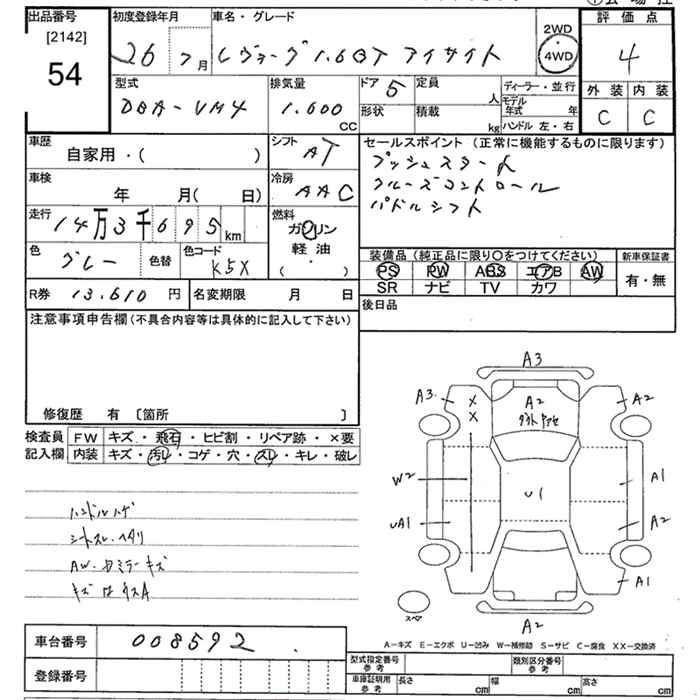 出品番号
[2142]
54
初度登録年月
26 7月
車名・グレード
レヴォーグ 1.6GT アイサイト
2WD
4WD
評価点
4
外装 内装
C C
型式
DBA-VM4
排気量
1.600 CC
ドア 5
形状
定員 人
積載 kg
ディーラー・並行
モデル年式 年
ハンドル 左・右
車歴
自家用・( )
シフト
AT
セールスポイント (正常に機能するものに限ります)
プッシュスタート
クルーズコントロール
パドルシフト
車検
年 月( 日)
冷房
AAC
走行
14万3千695km
燃料
ガソリン
軽油
( )
色
グレー
色替
色コード
K5X
装備品 (純正品に限り〇をつけてください)
PS PW ABS エアB AW
SR ナビ TV カワ
新車保証書
有・無
R券 13.610円
名変期限 月 日
後日品
注意事項申告欄 (不具合内容等は具体的に記入して下さい)
修復歴 有 〔箇所 〕
検査員記入欄
FW キズ・飛石・ヒビ割・リペア跡・×要
内装 キズ・汚レ・コゲ・穴・スレ・キレ・破レ
ハンドルハゲ
シートスレ・ヘタリ
AW・ドミラーキズ
A3
A3
A2
A2
X
X
W2
U1
A1
UA1
A2
A1
スペア
A2
A-キズ E-エクボ U-凹み W-補修跡 S-サビ C-腐食 XX-交換済
車台番号 008592
登録番号
型式指定番号 参考
類別区分番号 参考
車庫証明用 参考
長さ cm
幅 cm
高さ cm